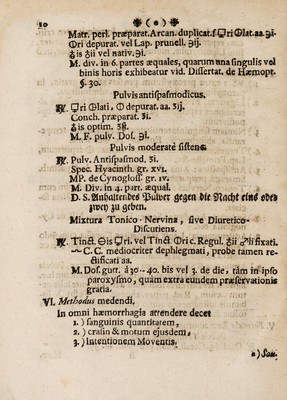 20 ( o )
Matr. perl. præparat. Arcan. duplicat. f 🜿ri 🜕lat. aa. ℈i.
🜕ri depurat. vel Lap. prunell. ℈ij.
♁is ʒii vel nativ. ℈i.
M. div. in 6. partes æquales, quarum una singulis vel
binis horis exhibeatur vid. Dissertat. de Hæmopt.
§. 30.
Pulvis antispasmodicus.
IV. 🜿ri 🜕lati, 🜕 depurat. aa. ʒij.
Conch. præparat. ʒi.
♁is optim. ʒß.
M. F. pulv. Dos. ℈i.
Pulvis moderatè sistens.
℞. Pulv. Antispasmod. ʒi.
Spec. Hyacinth. gr. xvi.
MP. de Cynogloss. gr. iv.
M. Div. in 4. part. æqual.
D. S. Anhaltendes Pulver gegen die Nacht eins oder
zwey zu geben.
Mixtura Tonico-Nervina, sive Diuretico-
Discutiens.
℞. Tinct. 🜔is 🜿ri. vel Tinct 🜕ri c. Regul. ʒii fixati.
C. C. mediocriter dephlegmati, probe tamen re-
ctificati aa.
M. Dos. gutt. â 30--40. bis vel 3. de die, tàm in ipso
paroxysmo, quam extra eundem præservationis
gratia.
VI. Methodus medendi.
In omni hæmorrhagia attendere decet
1.) sanguinis quantitatem,
2.) crasin & motum ejusdem,
3.) Intentionem Moventis.